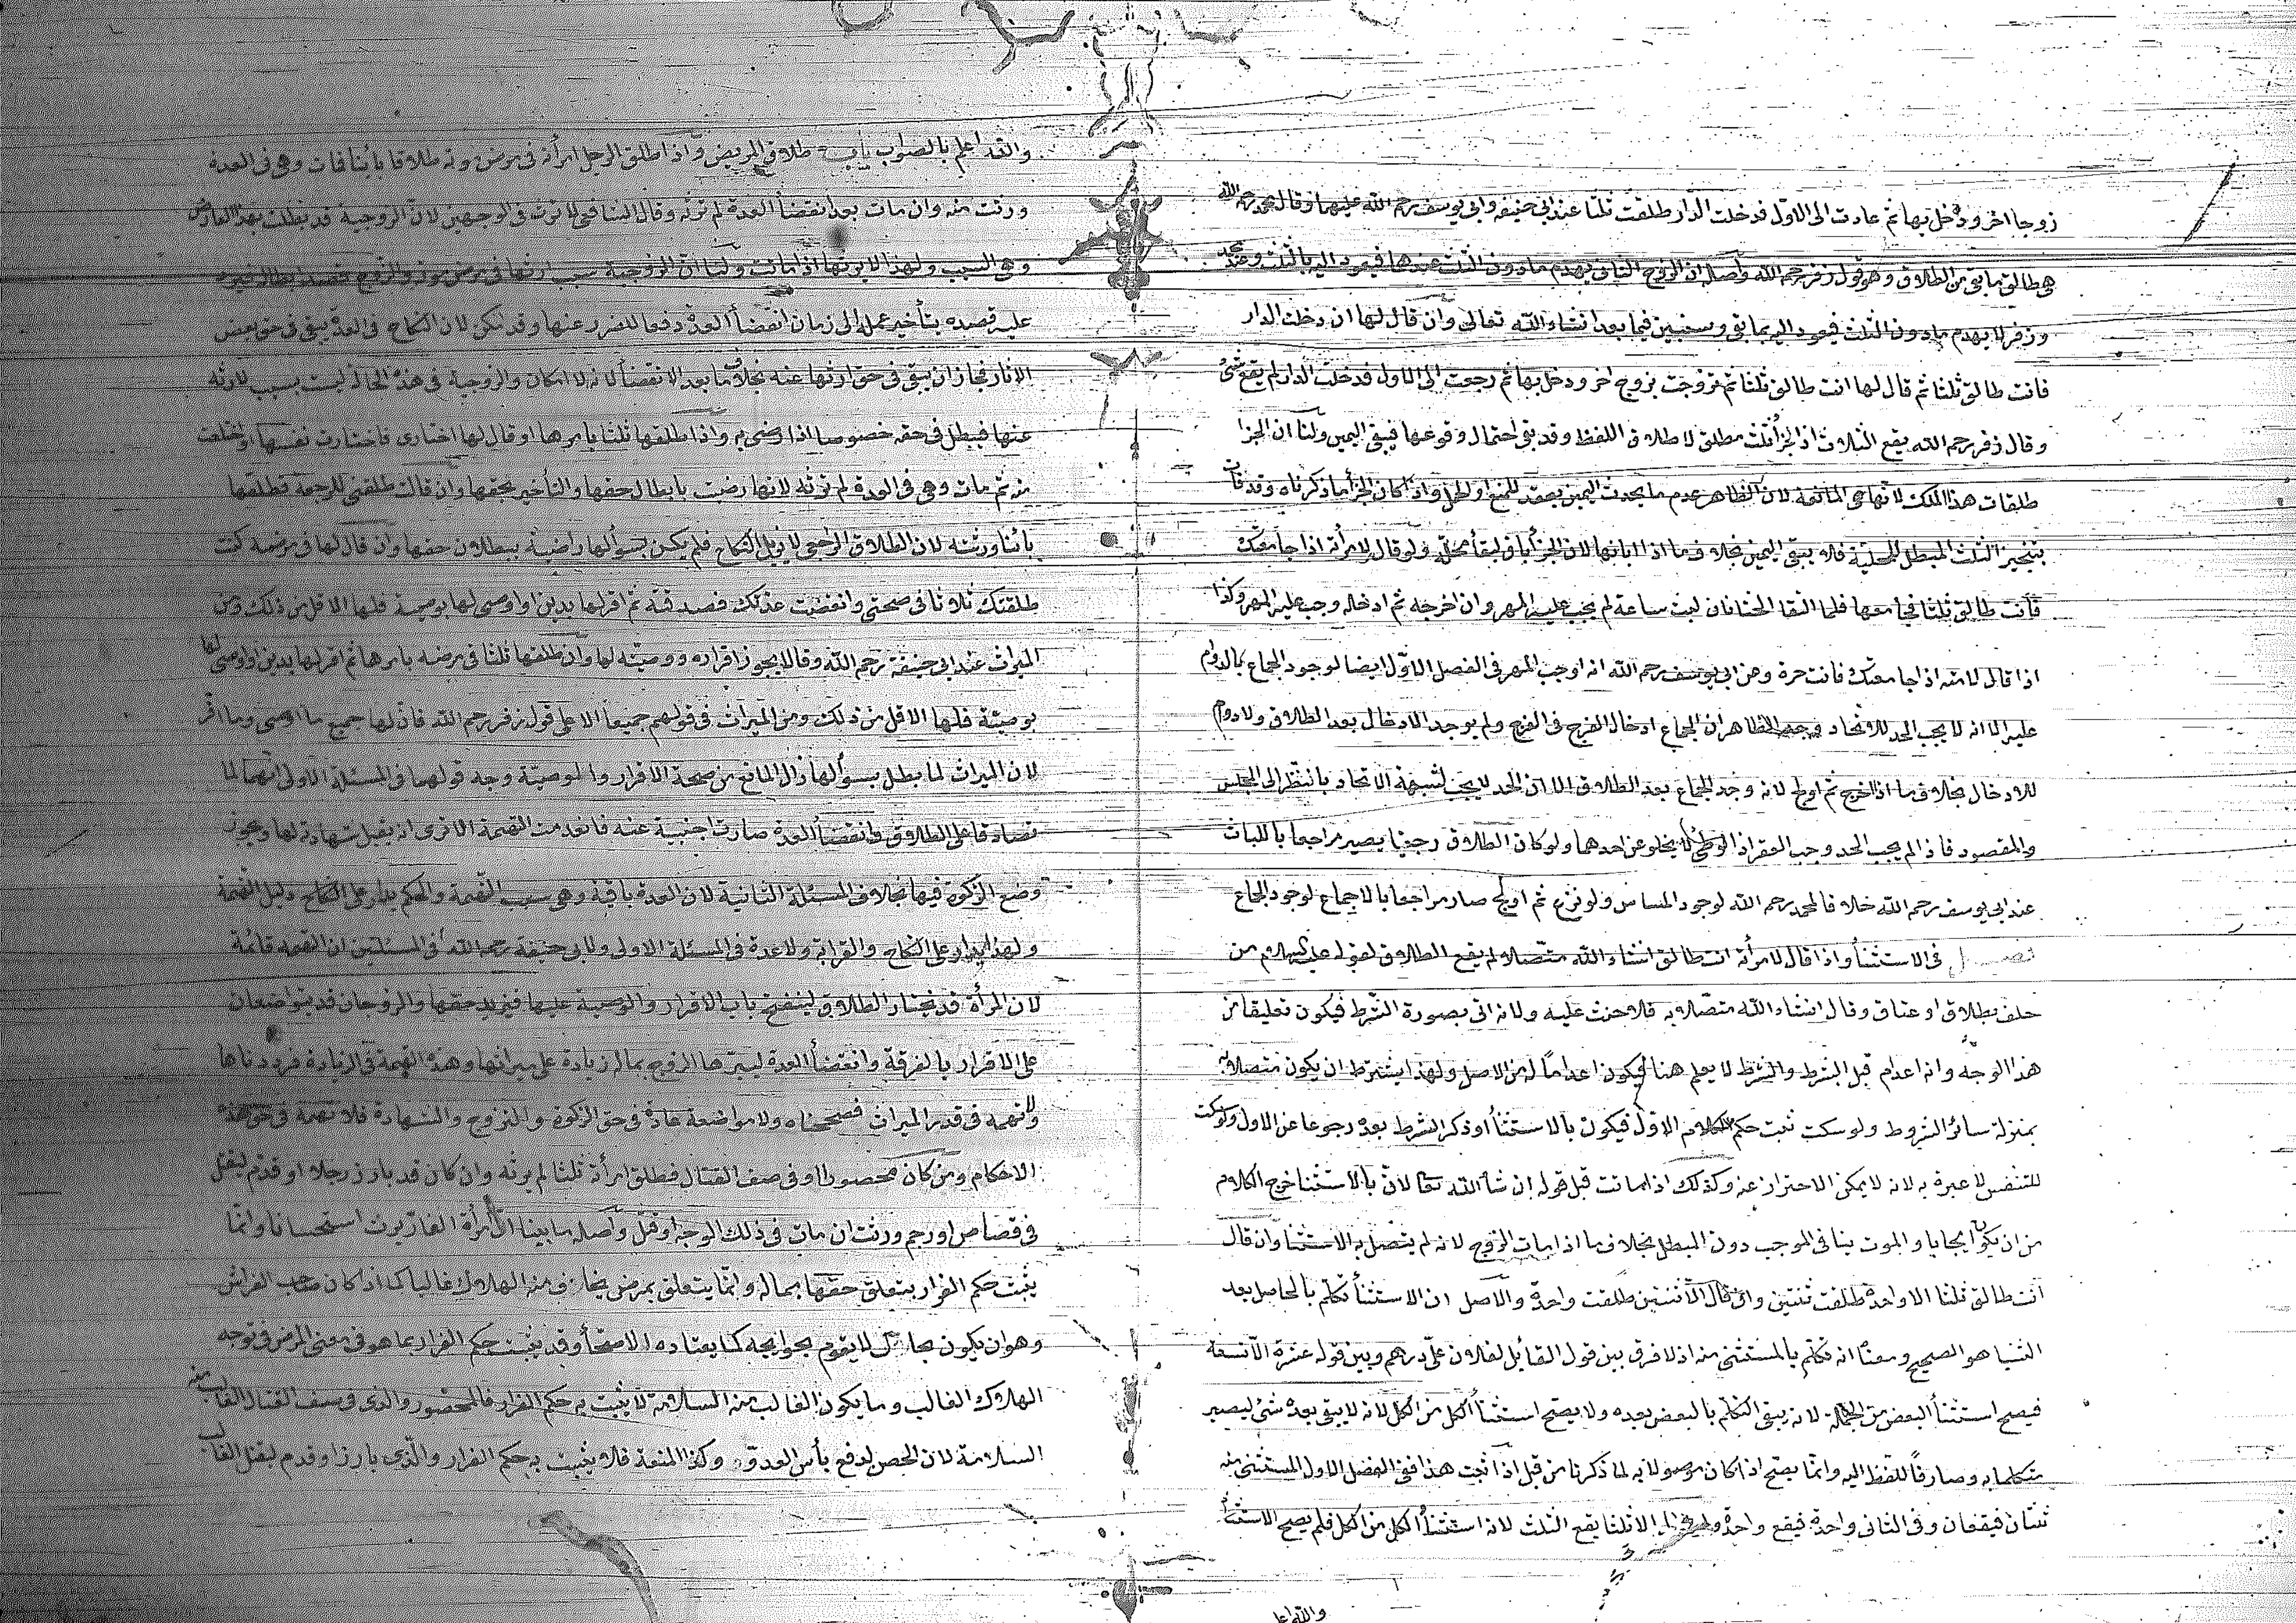 زوجا اخر ودخل بها ثم عادت الى الاول فدخلت الدار طلقت ثلثا عند ابى حنيفة وابى يوسف رحم الله عليهما وقال محمد رحمه الله
هى طالق ما بقى من الطلاق وهو قول زفر رحم الله واصله ان الزوج الثانى يهدم ما دون الثلث عندهما فيعود اليه بالثلث وعند محمد
وزفر لا يهدم ما دون الثلث فيعود اليه بما بقى وسنبين فيما بعد انشاء الله تعالى وان قال لها ان دخلت الدار
فانت طالق ثلثا ثم قال لها انت طالق ثلثا ثم تزوجت بزوج اخر ودخل بها ثم رجعت الى الاول فدخلت الدار لم يقع شئ
وقال زفر رحم الله يقع الثلاث اذ الجزأ ثلث مطلق لاطلاق اللفظ وقد بقى احتمال وقوعها فيبقى اليمين ولنا ان الجزا
طلقات هذا الملك لانها هى المانعة لان الظاهر عدم ما يحدث اليمين يعقد للمنع او الحمل واذا كان الجزأ ما ذكرناه وقد فات
بتنجيز الثلث المبطل للمحلية فلا يبقى اليمين بخلاف ما اذا ابانها لان الجزأ باق لبقأ محله ولو قال لامرأته اذا جامعتك
فانت طالق ثلثا فجامعها فلما التقا الختانان لبث ساعة لم يجب عليه المهر وان اخرجه ثم ادخله وجب عليه المهر وكذا
اذا قال لامته اذا جامعتك فانت حرة وعن ابى يوسف رحم الله انه اوجب المهر فى الفصل الاول ايضا لوجود الجماع بالدوام
عليه الا انه لا يجب الحد للاتحاد وجه الظاهر ان الجماع ادخال الفرج فى الفرج ولم يوجد الادخال بعد الطلاق ولا دوام
للادخال بخلاف ما اذا اخرج ثم اولج لانه وجد الجماع بعد الطلاق الا ان الحد لا يجب لشبهة الاتحاد بالنظر الى المجلس
والمقصود فاذا لم يجب الحد وجب العقر اذ الوطئ لا يخلو عن احدهما ولو كان الطلاق رجعيا يصير مراجعا باللباث
عند ابى يوسف رحم الله خلافا لمحمد رحم الله لوجود المساس ولو نزع ثم اولج صار مراجعا بالاجماع لوجود الجماع
فصل فى الاستثنأ واذا قال لامرأته انت طالق انشاء الله متصلا لم يقع الطلاق لقوله عليه السلام من
حلف بطلاق او عتاق وقال انشاء الله متصلا به فلا حنث عليه ولانه اتى بصورة الشرط فيكون تعليقا من
هذا الوجه وانه اعدام قبل الشرط والشرط لا يعلم هنا فيكون اعداما له من الاصل ولهذا يشترط ان يكون متصلا به
بمنزلة سائر الشروط ولو سكت ثبت حكم الكلام الاول فيكون بالاستثنأ او ذكر الشرط بعده رجوعا عن الاول ولو سكت
للتنفس لا عبرة به لانه لا يمكن الاحتراز عنه وكذلك اذا ماتت قبل قوله ان شأ الله تعا لان بالاستثنا خرج الكلام
من ان يكون ايجابا والموت ينافى الموجب دون المبطل بخلاف ما اذا مات الزوج لانه لم يتصل به الاستثنا وان قال
انت طالق ثلثا الا واحدة طلقت ثنتين وان قال الا ثنتين طلقت واحدة والاصل ان الاستثنأ تكلم بالحاصل بعد
الثنيا هو الصحيح ومعناه انه تكلم بالمستثنى منه اذ لا فرق بين قول القايل لفلان على درهم وبين قوله عشرة الا تسعة
فيصح استثنأ البعض من الجملة لانه يبقى التكلم بالبعض بعده ولا يصح استثنأ الكل من الكل لانه لا يبقى بعده شئ ليصير
متكلما به وصارفا للفظ اليه وانما يصح اذا كان موصولا به لما ذكرنا من قبل اذا ثبت هذا ففى الفصل الاول المستثنى منه
ثنتان فيقعان وفى الثانى واحدة فيقع واحدة ولو قال الا ثلثا يقع الثلث لانه استثنأ الكل من الكل فلم يصح الاستثنأ
والله اعلم
والله اعلم بالصواب باب طلاق المريض واذا طلق الرجل امرأته فى مرض موته طلاقا باينا فمات وهى فى العدة
ورثت منه وان مات بعد انقضأ العدة لم ترثه وقال الشافعى لا ترث فى الوجهين لان الزوجية قد بطلت بهذا العارض
وهى السبب ولهذا لا يرثها اذا ماتت ولنا ان الزوجية سبب ارثها فى مرض موته والزوج قصد ابطاله فيرد
عليه قصده بتأخير عمله الى زمان انقضأ العدة دفعا للضرر عنها وقد امكن لان النكاح فى العدة يبقى فى حق بعض
الاثار فجاز ان يبقى فى حق ارثها عنه بخلاف ما بعد الانقضأ لانه لا امكان والزوجية فى هذه الحالة ليست بسبب لارثه
عنها فيبطل فى حقه خصوصا اذا رضى به واذا طلقها ثلثا بامرها او قال لها اختارى فاختارت نفسها او اختلعت
منه ثم مات وهى فى العدة لم ترثه لانها رضيت بابطال حقها والتأخير لحقها وان قالت طلقنى للرجعة فطلقها
باينا ورثته لان الطلاق الرجعى لا يزيل النكاح فلم يكن بسؤالها راضية ببطلان حقها وان قال لها فى مرضه كنت
طلقتك ثلاثا فى صحتى وانقضت عدتك فصدقته ثم اقر لها بدين او اوصى لها بوصية فلها الاقل من ذلك ومن
الميراث عند ابى حنيفة رحم الله وقالا يجوز اقراره ووصيته لها وان طلقها ثلثا فى مرضه بامرها ثم اقر لها بدين او اوصى لها
بوصية فلها الاقل من ذلك ومن الميراث فى قولهم جميعا الا على قول زفر رحم الله فان لها جميع ما اوصى وما اقر
لان الميراث لما بطل بسؤالها زال المانع من صحة الاقرار والوصية وجه قولهما فى المسئلة الاولى انهما لما
تصادقا على الطلاق وانقضأ العدة صارت اجنبية عنه فانعدمت التهمة الا ترى انه يقبل شهادته لها ويجوز
وضع الزكوة فيها بخلاف المسئلة الثانية لان العدة باقية وهى سبب التهمة والحكم يدار على النكاح دليل التهمة
ولهذا يدار على النكاح والقرابة ولا عدة فى المسئلة الاولى ولابى حنيفة رحمه الله فى المسئلتين ان التهمة قائمة
لان المرأة قد تختار الطلاق لينفتح باب الاقرار والوصية عليها فيزيد حقها والزوجان قد يتواضعان
على الاقرار بالفرقة وانقضأ العدة ليبرها الزوج بماله زيادة على ميراثها وهذه التهمة فى الزيادة فرددناها
ولا تهمة فى قدر الميراث فصححناه ولا مواضعة عادة فى حق الزكوة والتزوج والشهادة فلا تهمة فى حق هذه
الاحكام ومن كان محصورا او فى صف القتال فطلق امرأته ثلثا لم يرثه وان كان قد بارز رجلا او قدم ليقتل
فى قصاص او رجم ورثت ان مات فى ذلك الوجه او قتل واصله ما بينا ان امرأة الفار يرث استحسانا وانما
يثبت حكم الفرار بتعلق حقها بماله وانما يتعلق بمرض يخاف منه الهلاك غالبا كما اذا كان صاحب الفراش
وهو ان يكون بحال لا يقوم بحوايجه كما يعتاده الاصحأ وقد يثبت حكم الفرار بما هو فى معنى المرض فى توجه
الهلاك الغالب وما يكون الغالب منه السلامة لا يثبت به حكم الفرار فالمحصور والذى فى صف القتال الغالب منه
السلامة لان الحصن لدفع بأس العدو وكذا المنعة فلا يثبت به حكم الفرار والذى بارز او قدم ليقتل الغالب